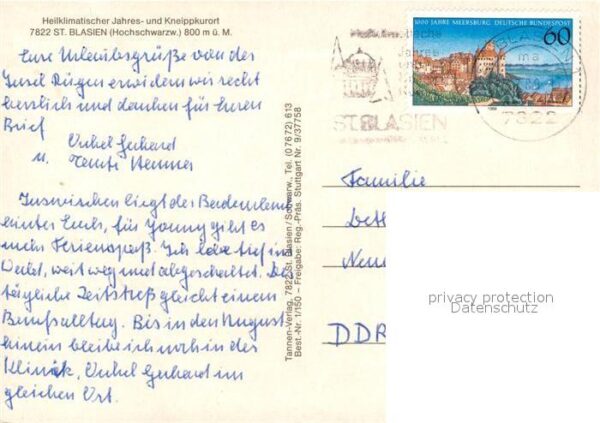 Heilklimatischer Jahres- und Kneippkurort
7822 ST. BLASIEN (Hochschwarzw.) 800 m ü. M.
Eure Urlaubsgrüße von der
Insel Rügen erwidern wir recht
herzlich und danken für Ihren
Brief
Onkel Gerhard
u. Tante
Inzwischen liegt das
hinter Euch, für gibt es
Ferienspaß. Ich
weit weg und abgeschaltet. Der
tägliche Zeitstreß gleicht einem
Berufsalltag. Bis in den August
hinein bleibe ich noch in der
Klinik, Onkel Gerhard im
gleichen Ort.
Tannen-Verlag, 7822 St. Blasien/Schwarzw., Tel. (07672) 613
Best.-Nr. 1/150 – Freigabe: Reg.-Präs. Stuttgart Nr. 9/37758
1000 JAHRE MEERSBURG DEUTSCHE BUNDESPOST
60
ST. BLASIEN
7822
Familie
DDR
privacy protection
Datenschutz